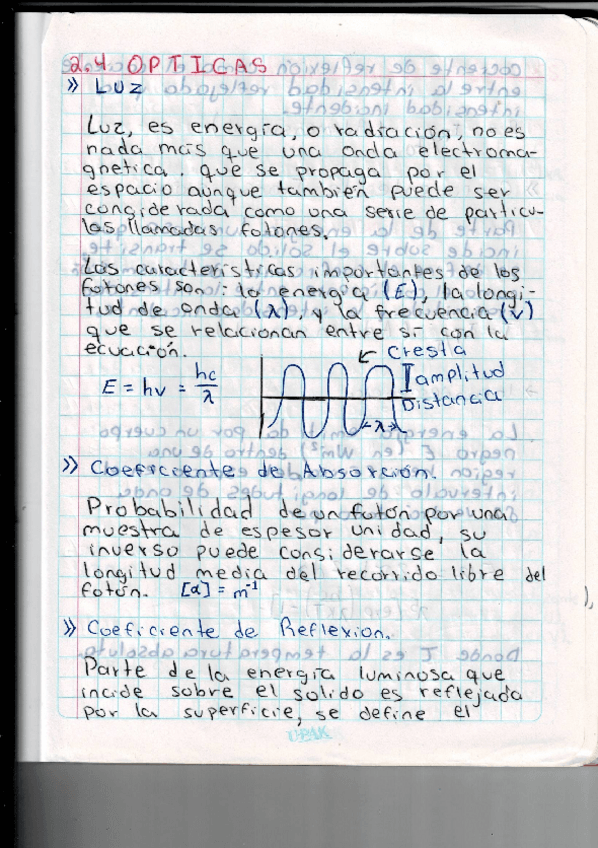 2.4 OPTICAS
» LUZ
Luz, es energía, o radiación, no es
nada más que una onda electroma-
gnetica. que se propaga por el
espacio aunque también puede ser
considerada como una serie de particu-
las llamadas fotones.
Las características importantes de los
fotones son: la energía (E), la longi-
tud de onda (λ), y la frecuencia (v)
que se relacionan entre sí con la
ecuación.
Cresta
E = hv = hc/λ
amplitud
Distancia
λ
» Coeficcente de Absorción.
Probabilidad de un fotón por una
muestra de espesor unidad, su
inverso puede considerarse la
longitud media del recorrido libre del
fotón. [α] = m⁻¹
» Coeficiente de Reflexion.
Parte de la energía luminosa que
incide sobre el solido es reflejada
por la superficie, se define el